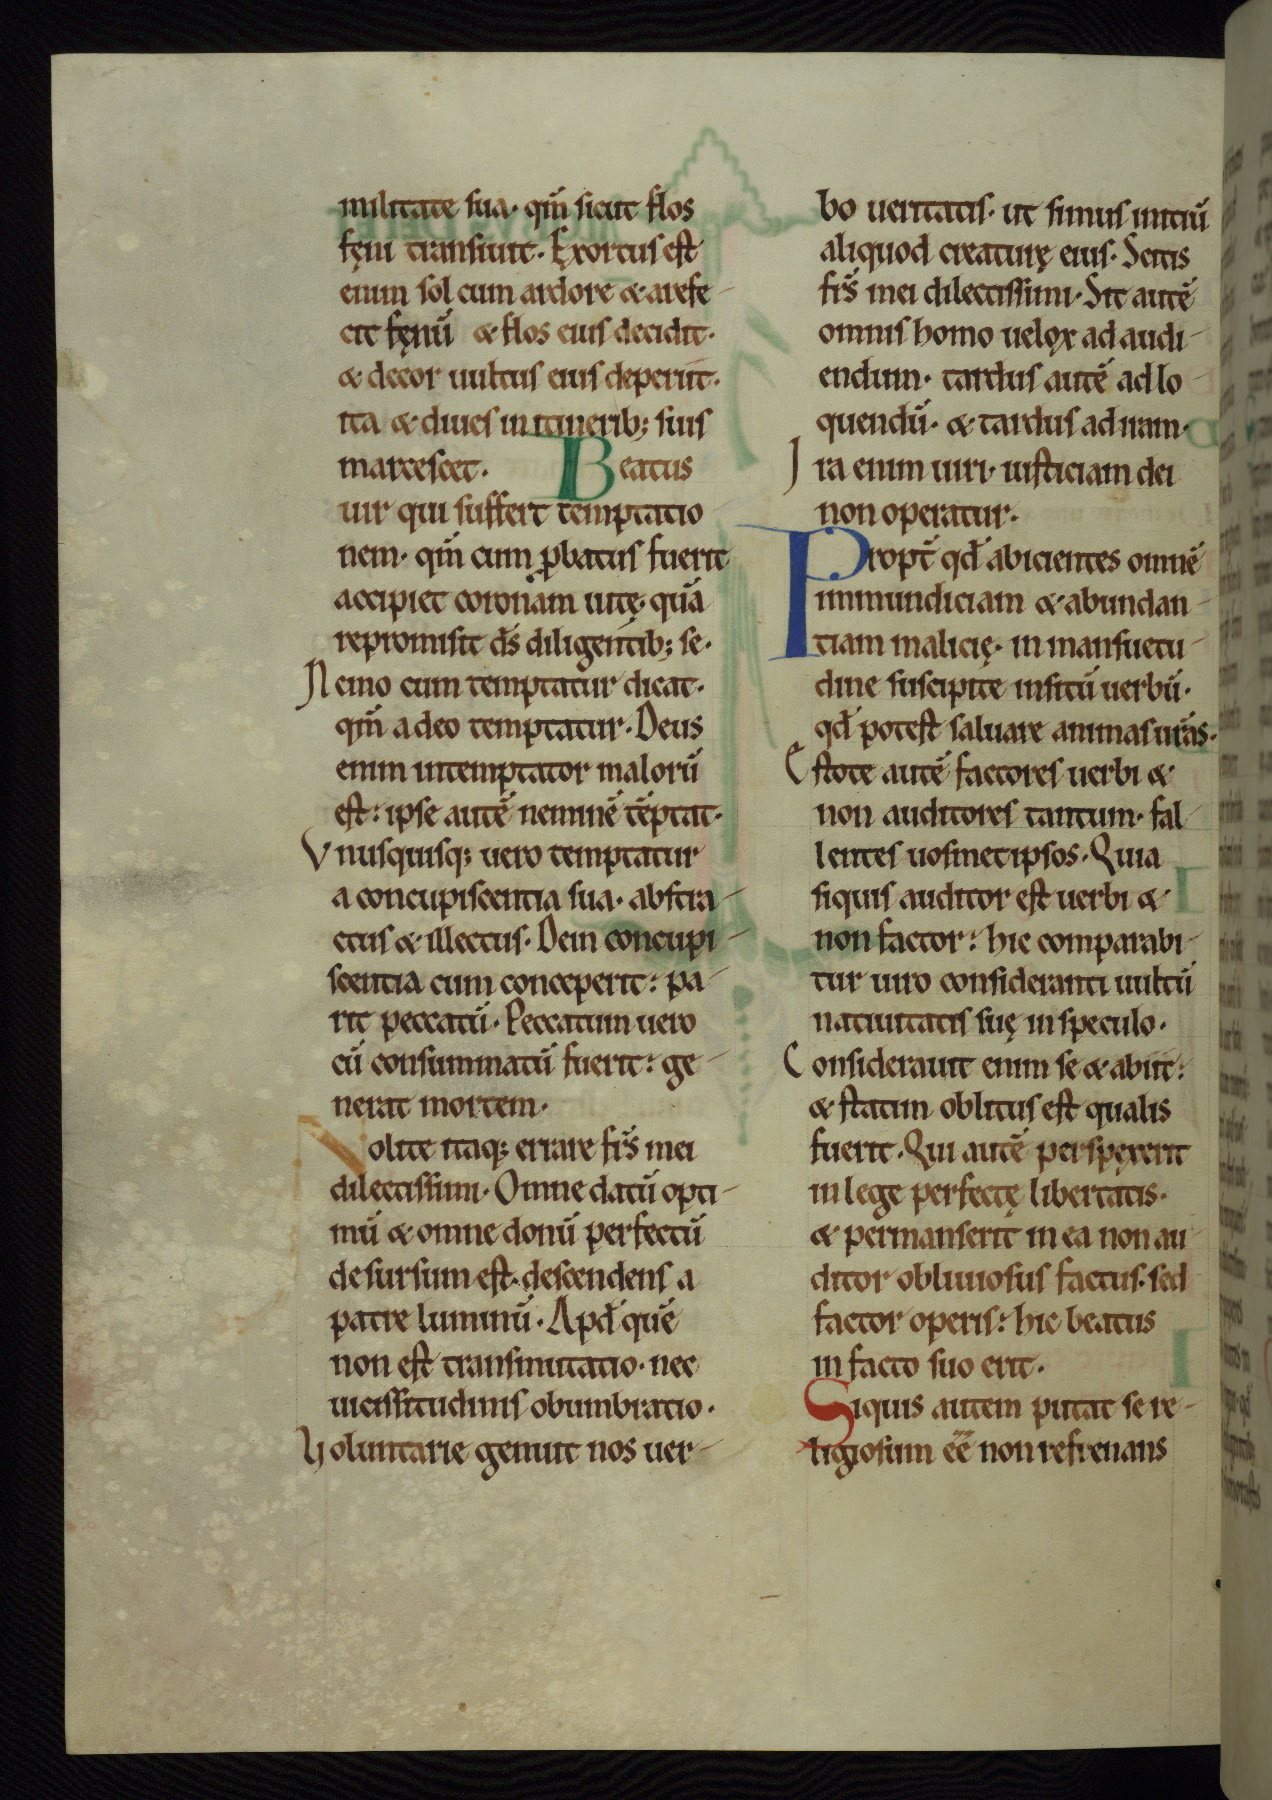 militate sua· qm̄ sicut flos
fęni transiuit· Exortus est
enim sol cum ardore & arefe-
cit fęnū & flos eius decidit·
& decor uultus eius deperiit·
ita & diues in itinerib; suis
marcescet· Beatus
uir qui suffert temptatio
nem· qm̄ cum ꝓbatus fuerit
accipiet coronam uitę· quā
repromisit ds̄ diligentib; se·
Nemo cum temptatur dicat·
qm̄ a deo temptatur· Deus
enim intemptator malorū
est: ipse autē neminē tēptat·
Vnusquisq; uero temptatur
a concupiscentia sua· abstra-
ctus & illectus· Dein concupi-
scentia cum conceperit: pa-
rit peccatū· Peccatum uero
cū consummatū fuerit: ge-
nerat mortem·
Nolite itaq; errare frs̄ mei
dilectissimi· Omne datū opti-
mū & omne donū perfectū
desursum est· descendens a
patre luminū· Apd̄ quē
non est transmutatio· nec
uicissitudinis obumbratio·
Voluntarie genuit nos uer-
bo ueritatis· ut simus initiū
aliquod creaturę eius· Scitis
frs̄ mei dilectissimi· Sit autē
omnis homo uelox ad audi-
endum· tardus autē ad lo-
quendū· & tardus ad iram·
Ira enim uiri· iusticiam dei
non operatur·
Propt̄ qd̄ abicientes omnē
immundiciam & abundan-
tiam malicię· in mansuetu-
dine suscipite insitū uerbū·
qd̄ potest saluare animas ur̄as·
Estote autē factores uerbi &
non auditores tantum· fal-
lentes uosmetipsos· Quia
siquis auditor est uerbi &
non factor: hic comparabi-
tur uiro consideranti uultū
natiuitatis suę in speculo·
Considerauit enim se & abiit:
& statim oblitus est qualis
fuerit· Qui autē perspexerit
in lege perfectę libertatis·
& permanserit in ea non au-
ditor obliuiosus factus· sed
factor operis: hic beatus
in facto suo erit·
Siquis autem putat se re-
ligiosum eē non refrenans